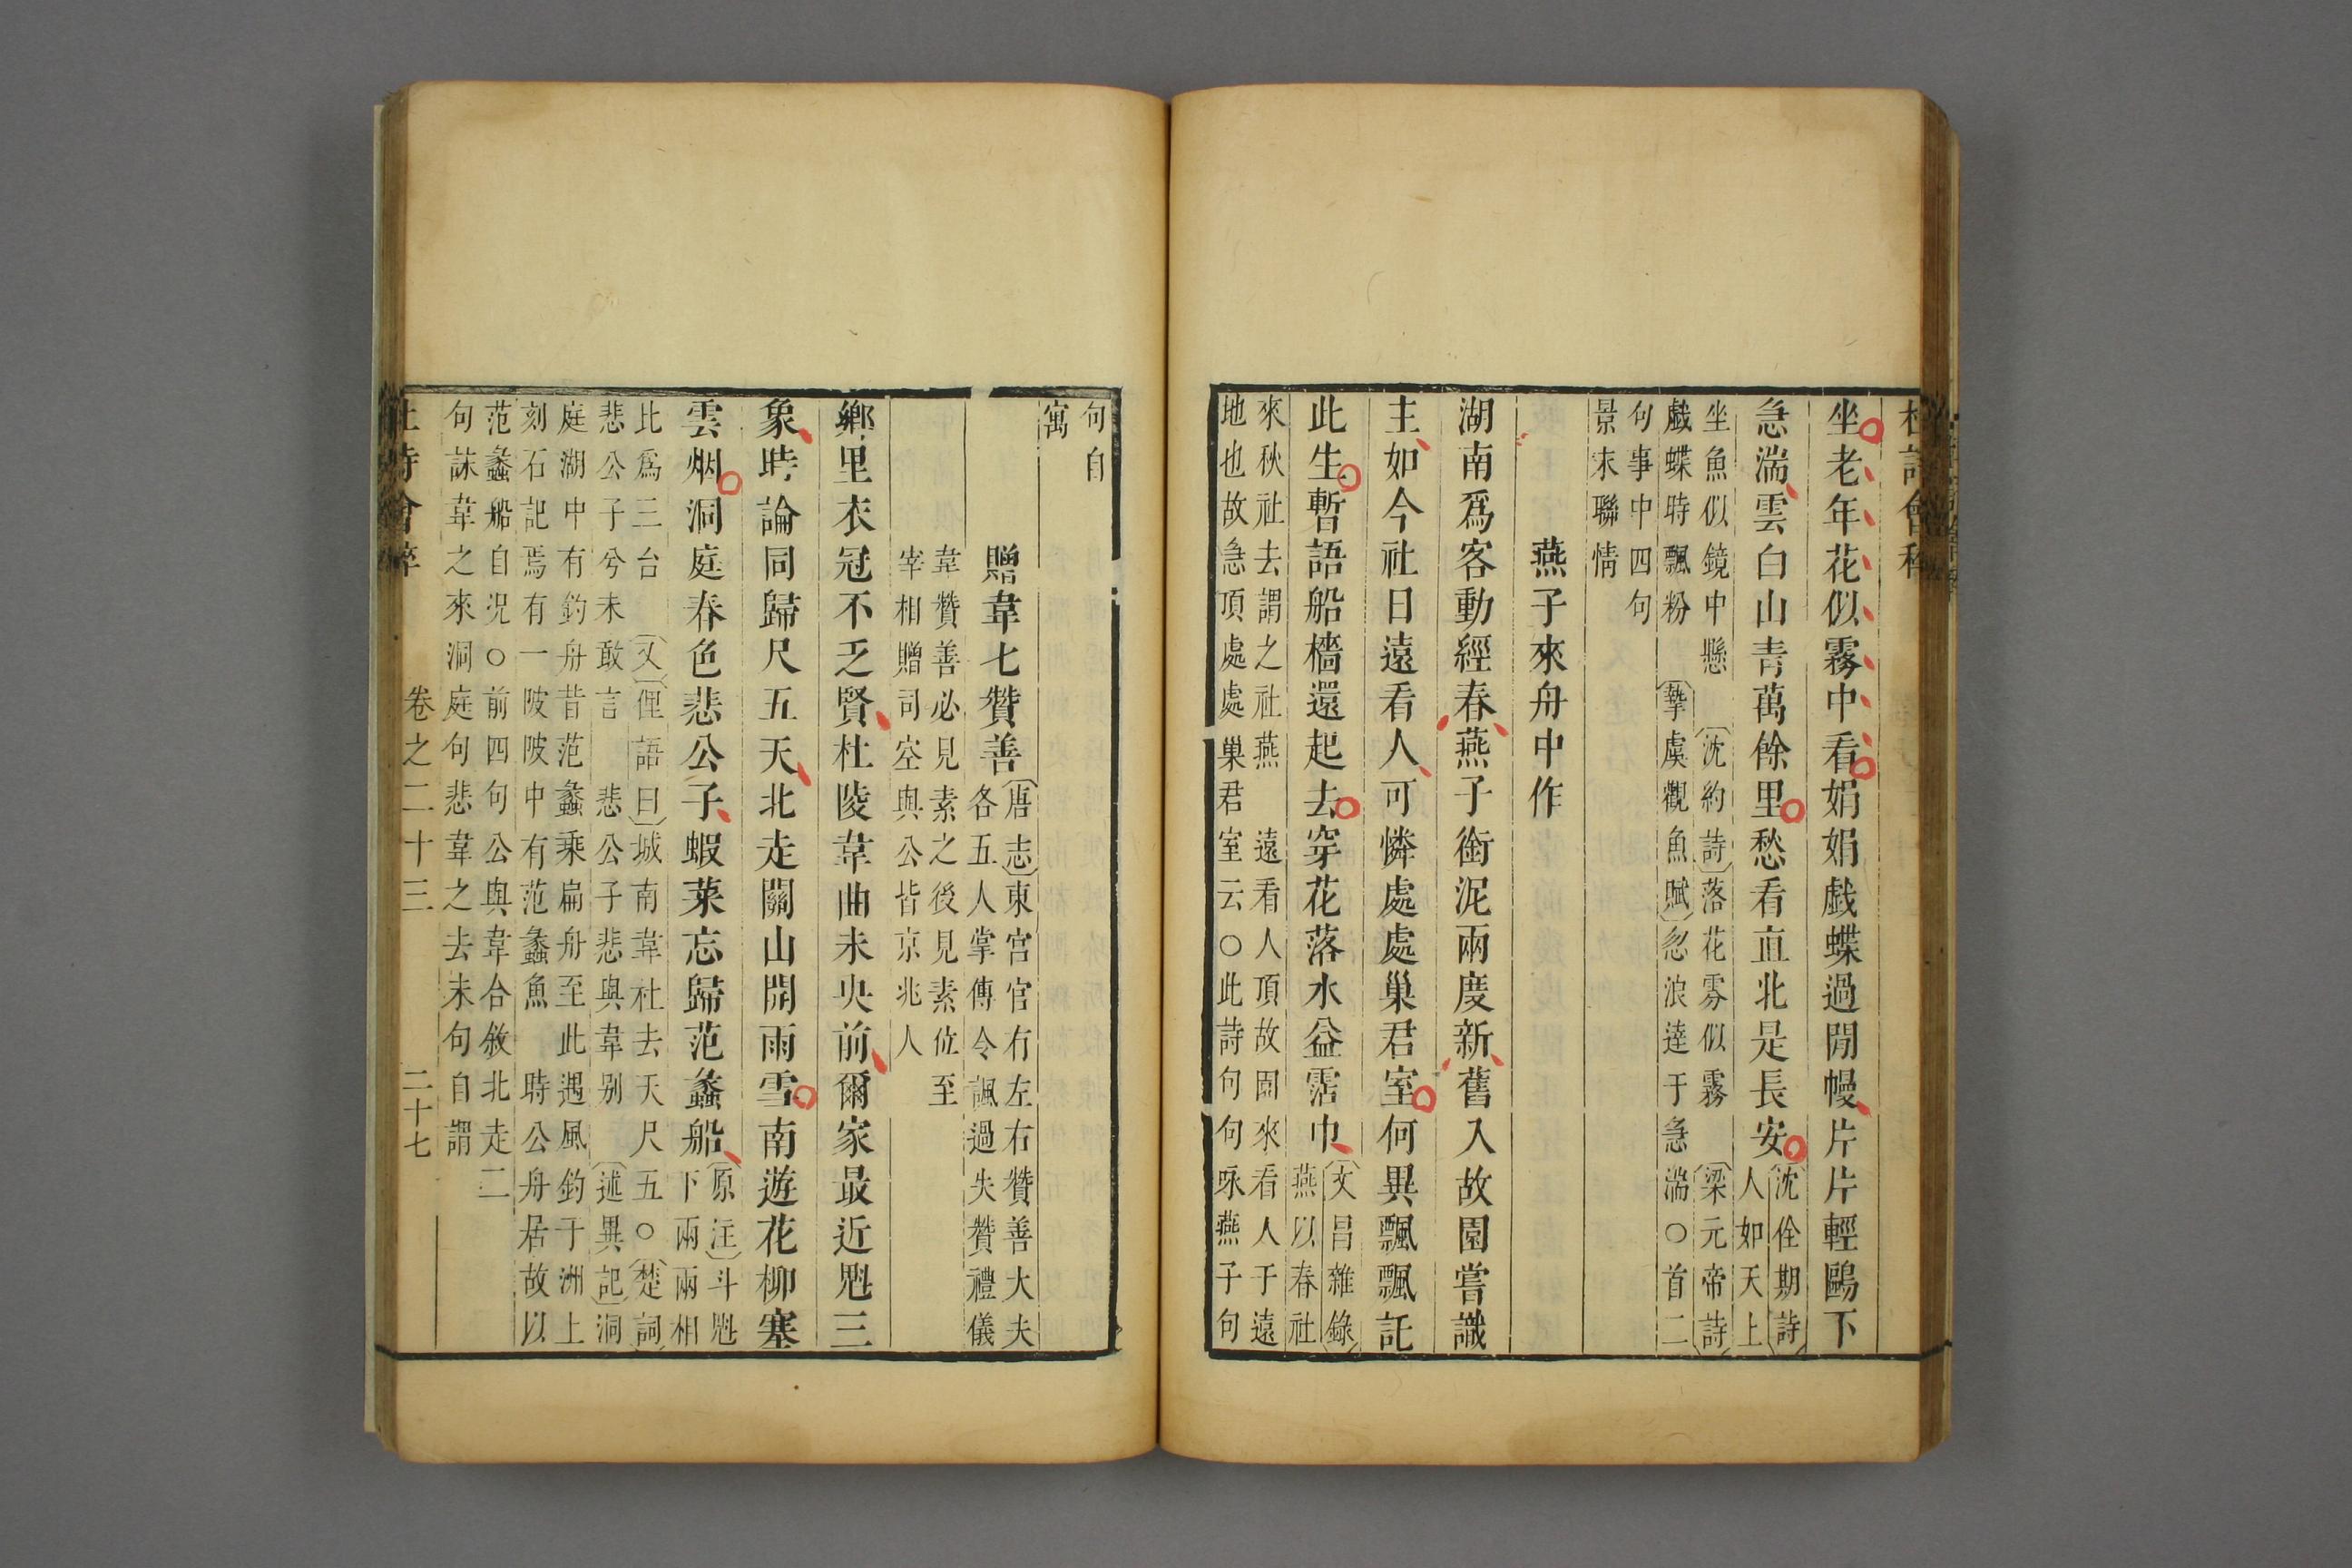 杜詩會稡
坐老年花似霧中看娟娟戲蝶過閒幔片片輕鷗下
急湍雲白山青萬餘里愁看直北是長安
沈佺期詩
人如天上
坐魚似鏡中懸 沈約詩落花雰似霧 梁元帝詩
戯蝶時飄粉 摯虞觀魚賦忽浪逹于急湍○首二
句事中四句
景末聯情
燕子來舟中作
湖南爲客動經春燕子銜泥兩度新舊入故園嘗識
主如今社日遠看人可憐處處巢君室何異飄飄託
此生暫語船檣還起去穿花落水益霑巾
文昌雜錄
燕以春社
來秋社去謂之社燕 遠看人頂故園來看人于遠
地也故急頂處處巢君室云○此詩句句咏燕子句
句自
寓
贈韋七贊善
唐志東宮官有左右贊善大夫
各五人掌傳令諷過失贊禮儀
韋贊善必見素之後見素位至
宰相贈司空與公皆京兆人
鄉里衣冠不乏賢杜陵韋曲未央前爾家最近魁三
象時論同歸尺五天北走關山開雨雪南遊花柳塞
雲烟洞庭春色悲公子蝦菜忘歸范蠡船
原注斗魁
下兩兩相
比爲三台 又俚語曰城南韋杜去天尺五○楚詞
悲公子兮未敢言 悲公子悲與韋别 述異記洞
庭湖中有釣舟昔范蠡乘扁舟至此遇風釣于洲上
刻石記焉有一陂陂中有范蠡魚 時公舟居故以
范蠡船自况○前四句公與韋合敘北走二
句誄韋之來洞庭句悲韋之去末句自謂
杜詩會稡 卷之二十三 二十七